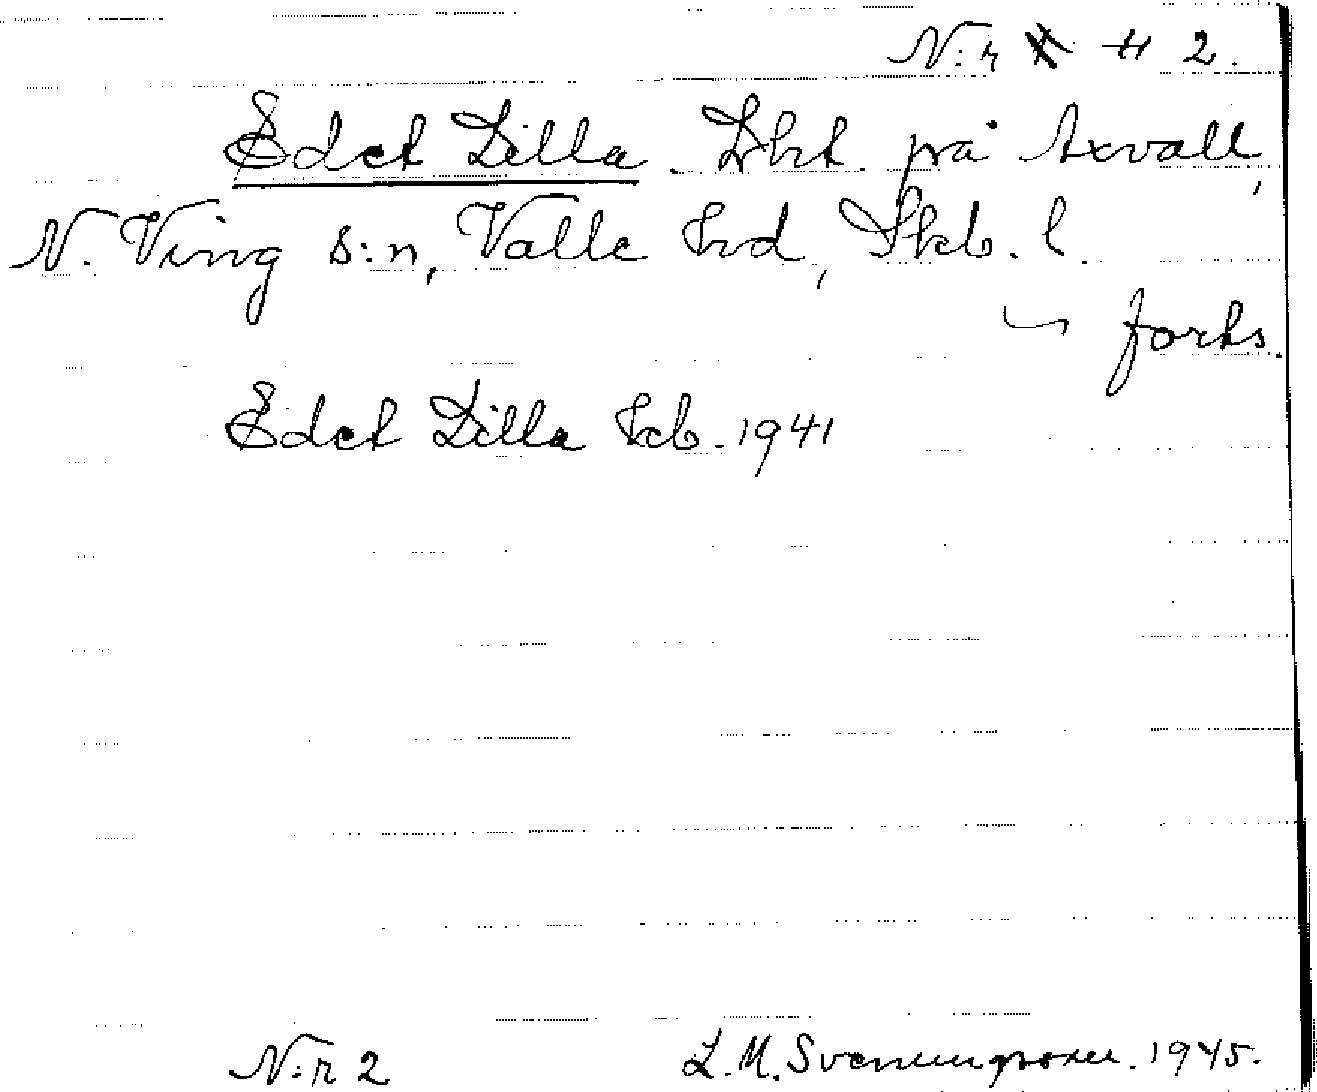 N:r 2.
Edet Lilla. Lht. på Axvall,
N. Ving s:n, Valle hd, Skb. l.
forts.
Edet Lilla Ecb. 1941
N:r 2 L.M. Svenungsson. 1945.